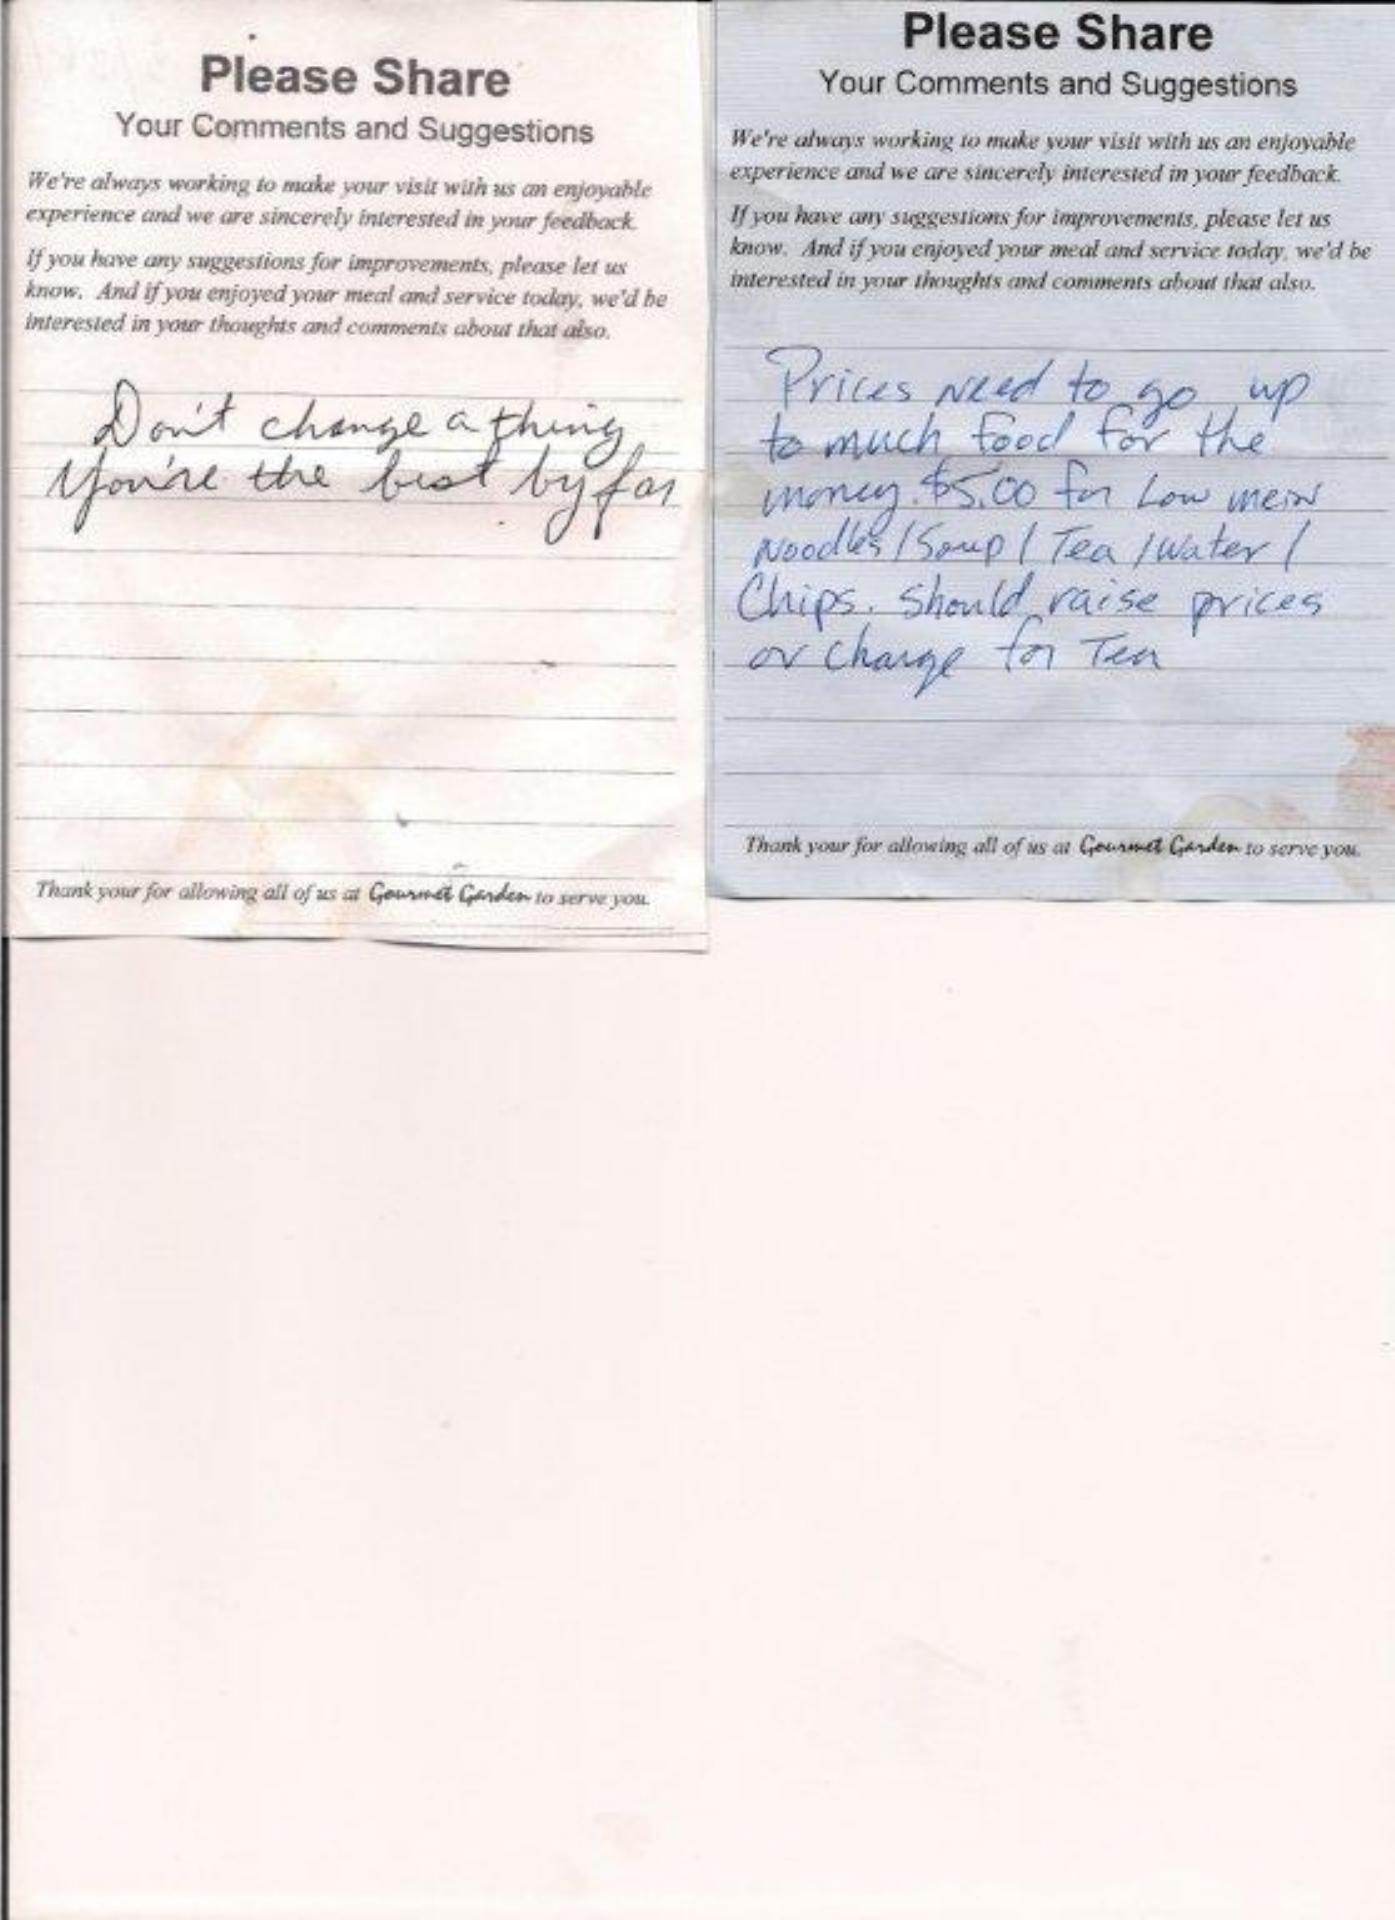 Please Share
Your Comments and Suggestions
We're always working to make your visit with us an enjoyable
experience and we are sincerely interested in your feedback.
If you have any suggestions for improvements, please let us
know. And if you enjoyed your meal and service today, we'd be
interested in your thoughts and comments about that also.
Don't change a thing
You're the best by far
Thank your for allowing all of us at Gourmet Garden to serve you.
Please Share
Your Comments and Suggestions
We're always working to make your visit with us an enjoyable
experience and we are sincerely interested in your feedback.
If you have any suggestions for improvements, please let us
know. And if you enjoyed your meal and service today, we'd be
interested in your thoughts and comments about that also.
Prices need to go up
to much food for the
money. $5.00 for Low mein
Noodles / Soup / Tea / Water /
Chips. Should raise prices
or charge for Tea
Thank your for allowing all of us at Gourmet Garden to serve you.